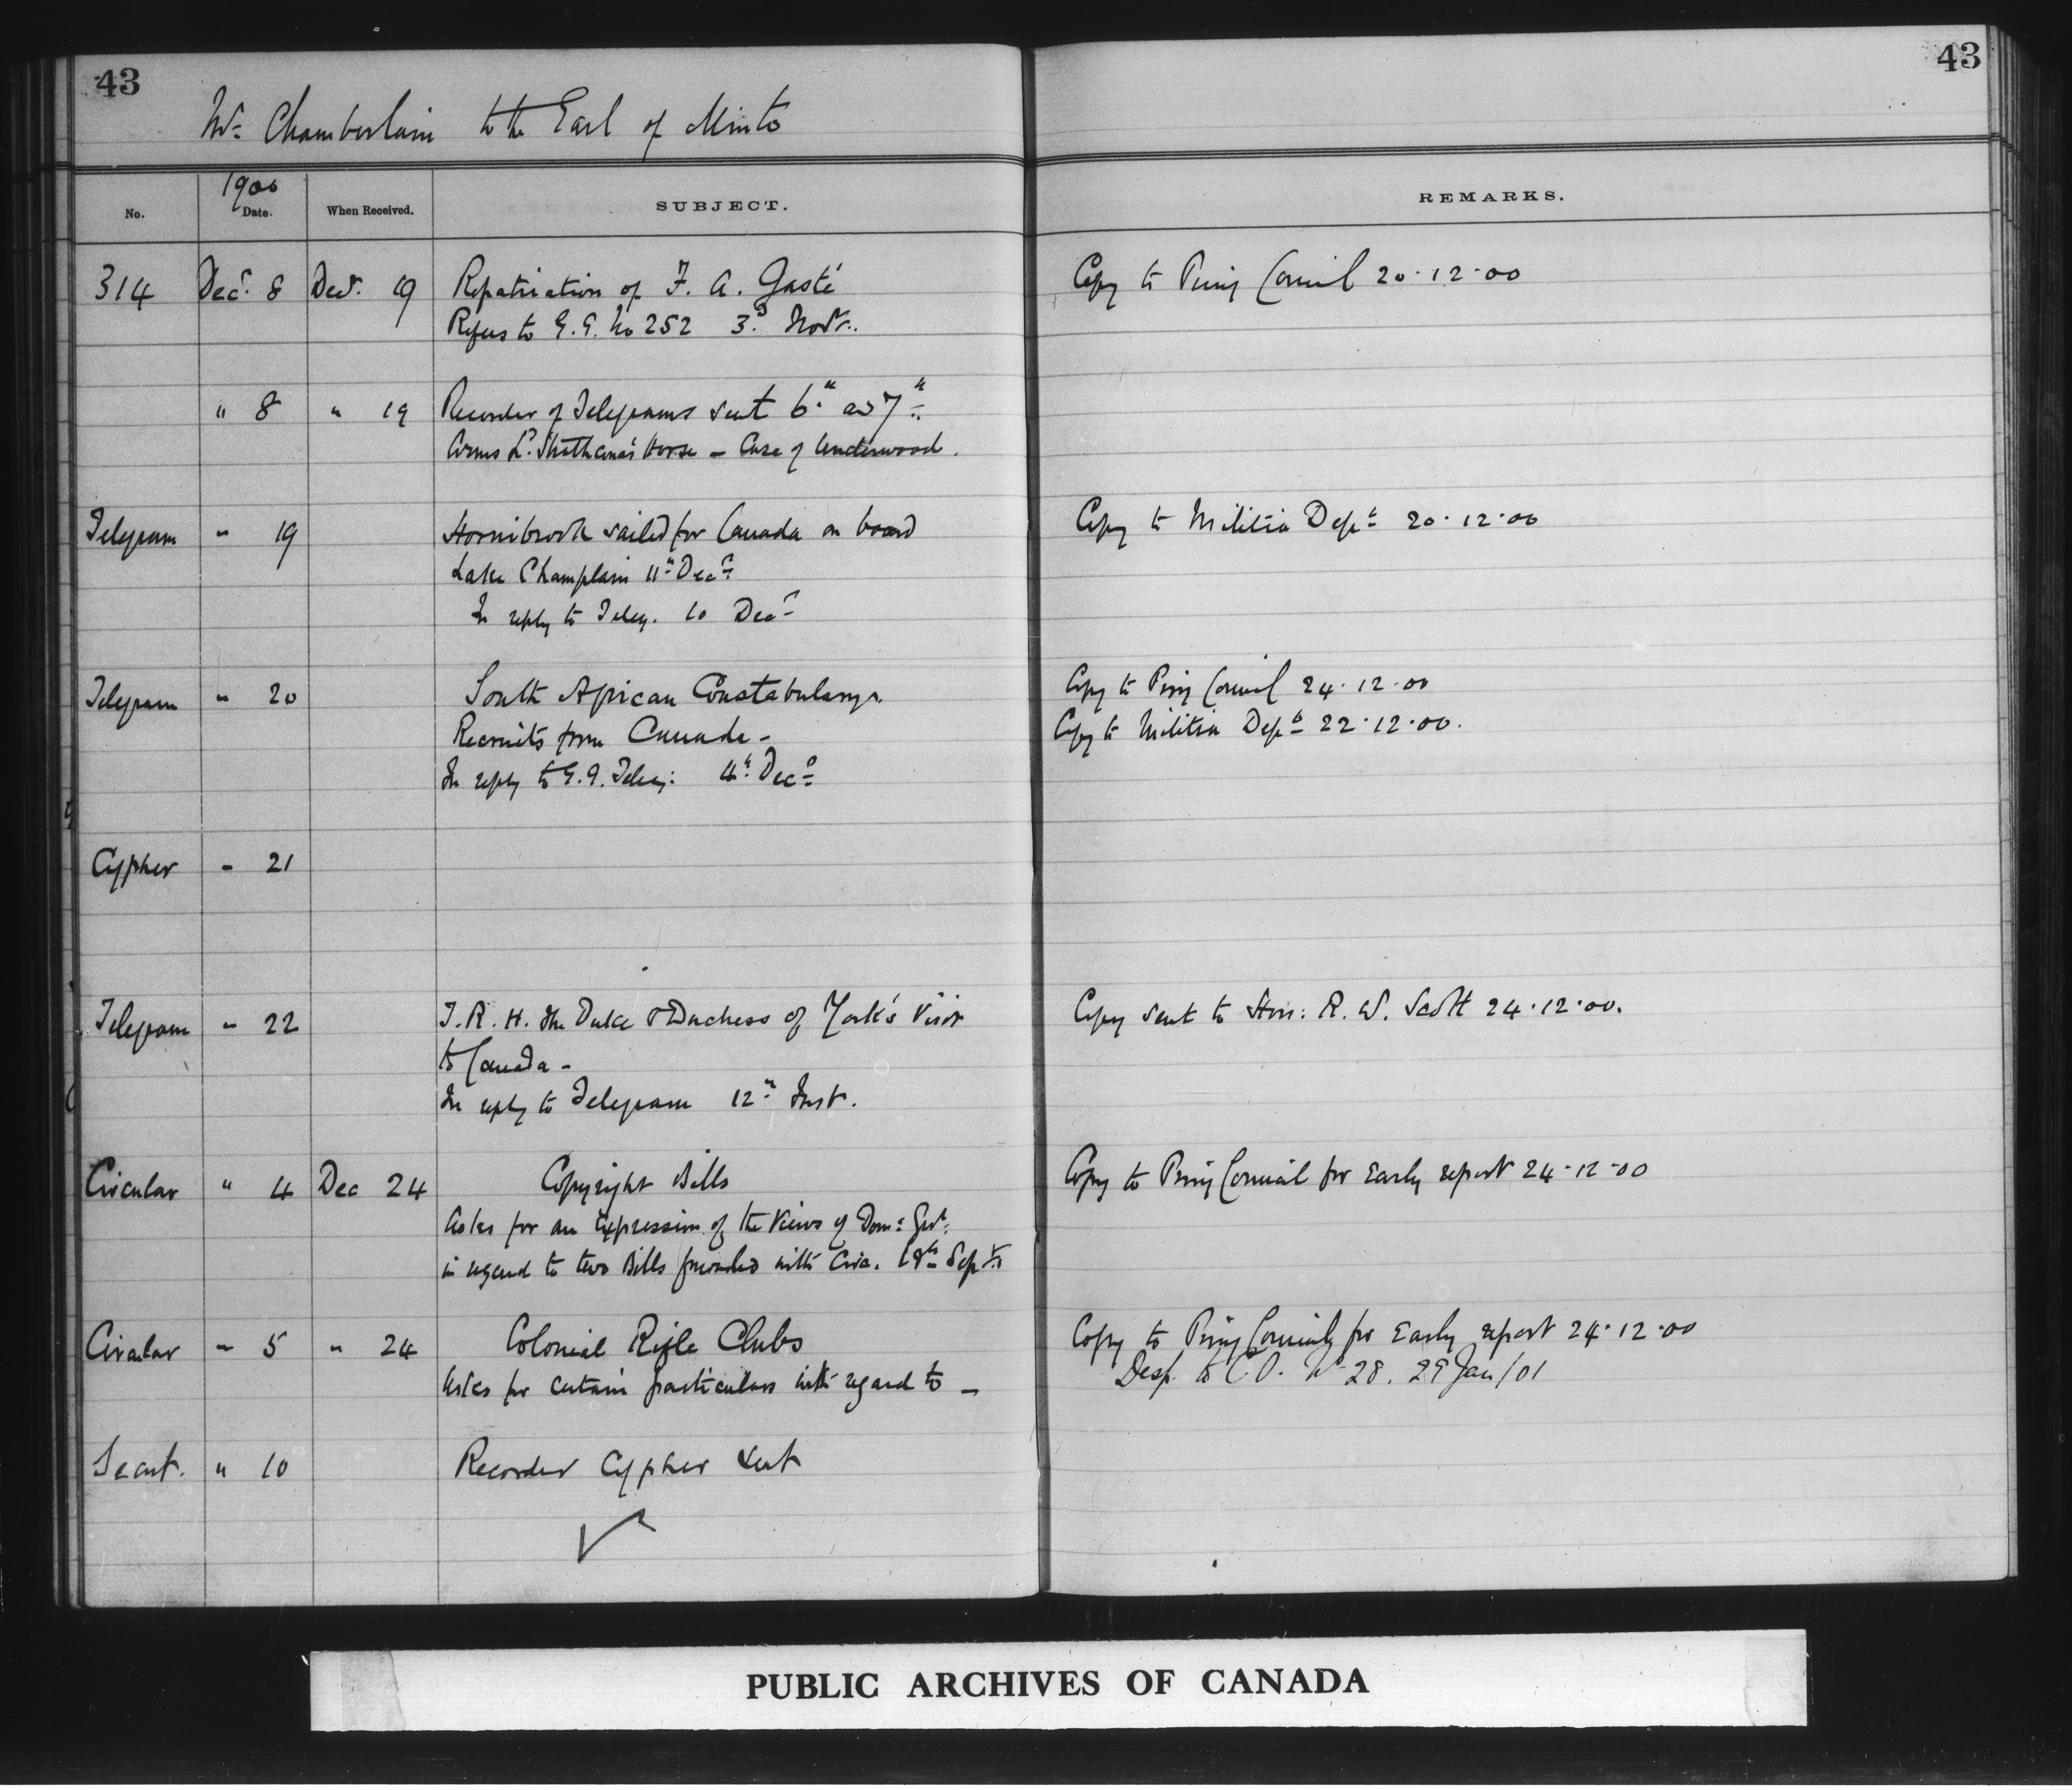 43
43
Mr. Chamberlain to the Earl of Minto
No.
1900
Date.
When Received.
SUBJECT.
REMARKS.
314 Decr. 8 Decr. 19 Repatriation of F. A. Gasté
Copy to Privy Council 20.12.00
Refers to G.G. No 252 3rd Novr.
" 8 " 19 Recorder of Telegrams sent 6th and 7th
Arms Ld. Strathcona's Horse - Case of Underwood.
Telegram " 19 Hornibrook sailed for Canada on board
Copy to Militia Dept 20.12.00
Lake Champlain 11th Decr
In reply to Teleg. 10 Decr
Telegram " 20 South African Constabulary.
Copy to Privy Council 24.12.00
Recruits from Canada -
Copy to Militia Dept 22.12.00.
In reply to G.G. Teleg: 4th Decr
Cypher " 21
Telegram " 22 T.R.H. the Duke & Duchess of York's Visit
Copy sent to Hon: R. W. Scott 24.12.00.
to Canada -
In reply to Telegram 12th Inst.
Circular " 4 Dec 24 Copyright Bills
Copy to Privy Council for Early report 24.12.00
Asks for an Expression of the Views of Dom: Govt.
in regard to two Bills forwarded with Circ. 18th Septr
Circular " 5 " 24 Colonial Rifle Clubs
Copy to Privy Council for Early report 24.12.00
Asks for certain particulars with regard to -
Desp. to C.O. No 28. 29 Jan/01
Secret. " 10 Recorder Cypher sent
PUBLIC ARCHIVES OF CANADA